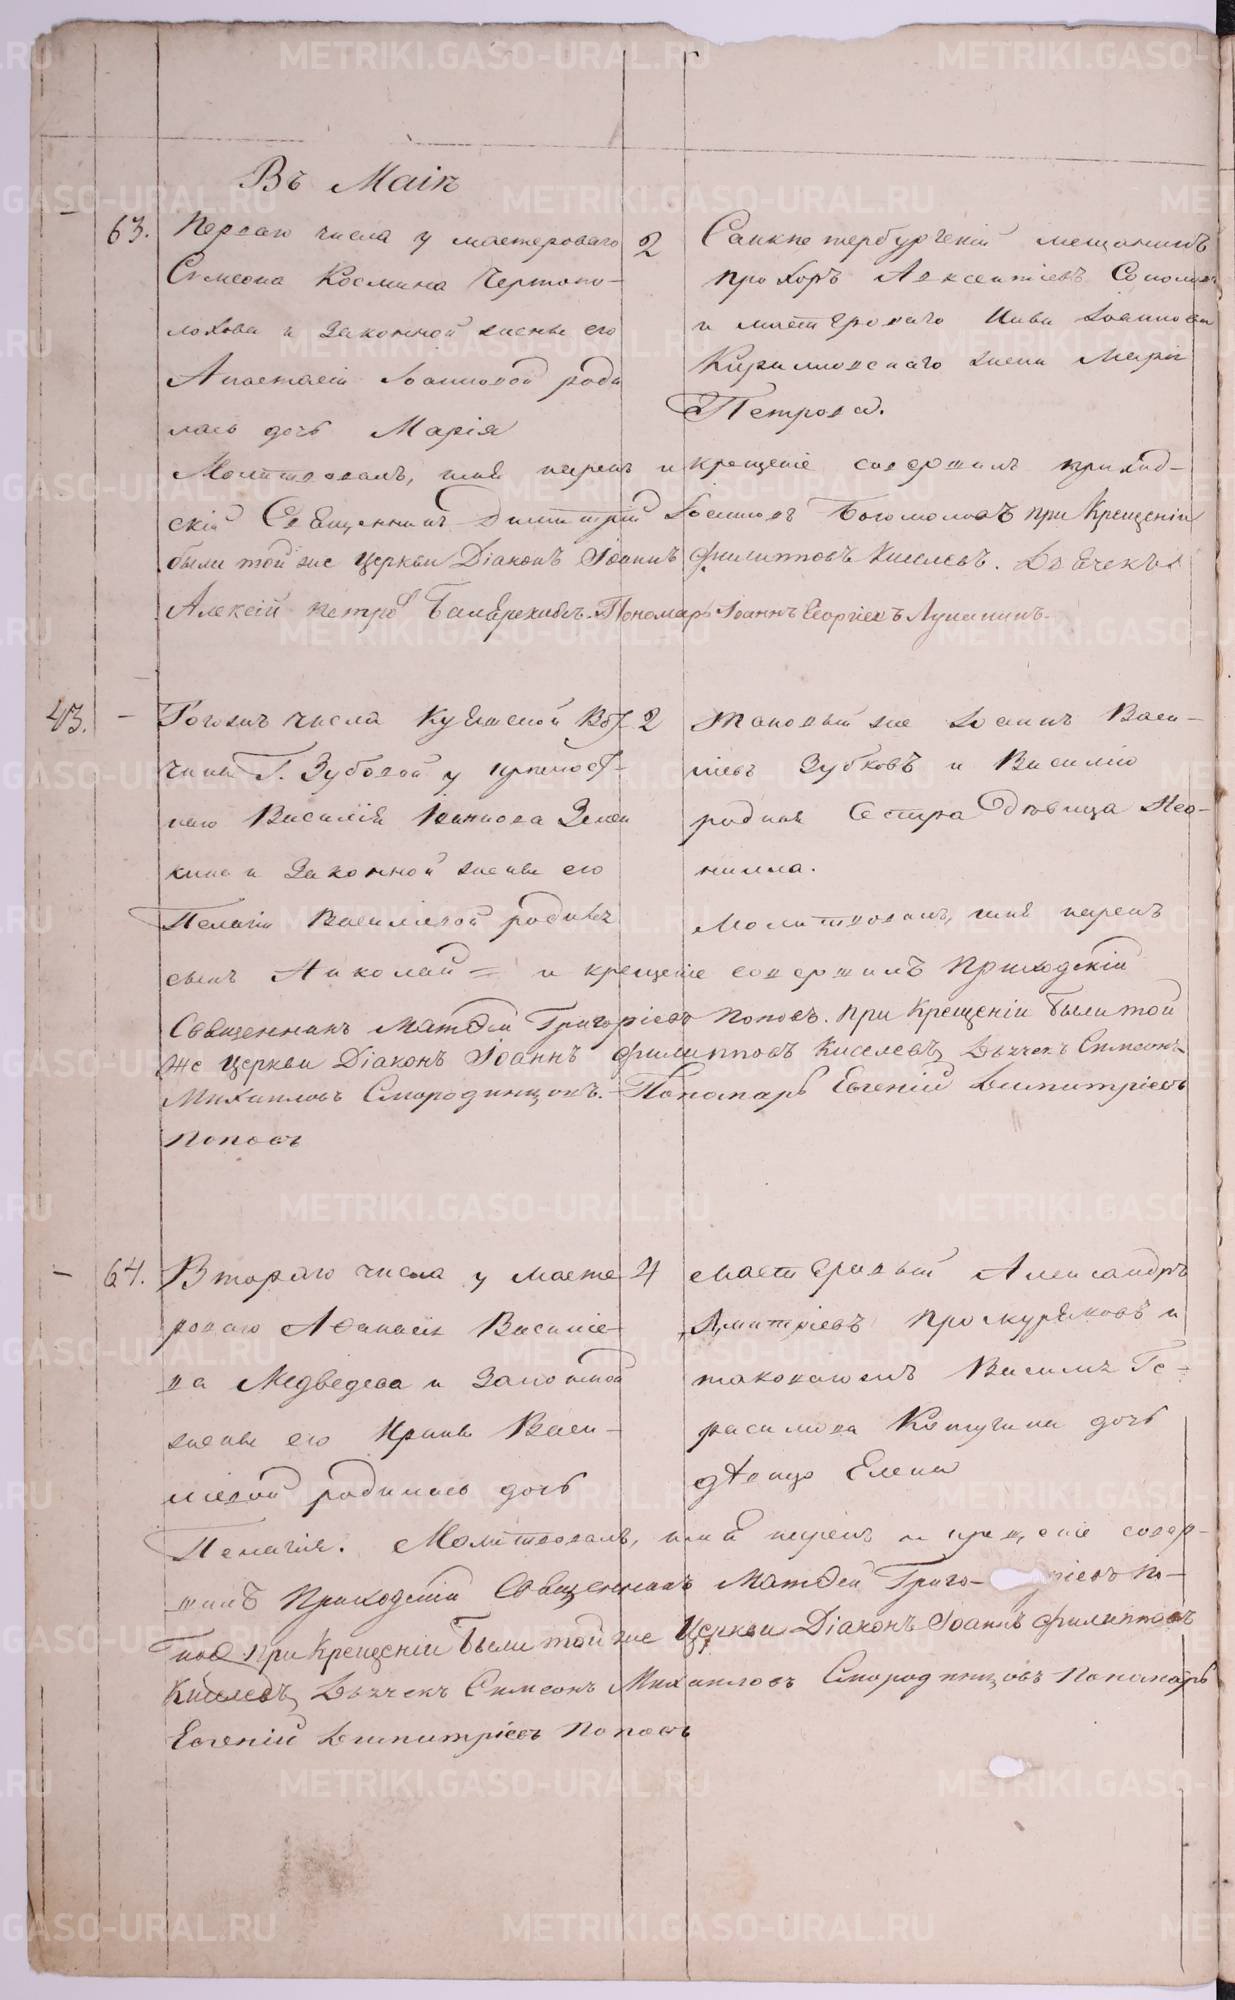 Въ Маiѣ
63. Перваго числа у мастероваго 2
Симеона Космина Чертопо-
лохова и законной жены его
Анастасiи Iоанновой роди
лась дочь Марiя
Санкпетербургскiй мещанинъ
Прохоръ Авксентiевъ
и мастероваго Iоаннова
Кирилловскаго жена Марiя
Петрова.
Молитвовалъ, имя нарекъ и крещенiе совершилъ приход-
скiй Священникъ Димитрiй Богомоловъ при Крещенiи
были той же церкви Дiаконъ Iоаннъ Филипповъ Киселевъ.
Алексiй Петров Пономарь Iоаннъ Георгiевъ Лукининъ.
43. – Тогожъ числа 2
чины Г. Зубовой у крепост-
наго Василiя Iоаннова
кина и законной жены его
Пелагiи Васильевой родился
сынъ Николай =
Таковый же Iоаннъ Васи-
лiевъ Зубковъ и Василiю
родная Сестра Девица Нео-
нилла.
Молитвовалъ, имя нарекъ
и крещенiе совершилъ Приходскiй
Священникъ Матфей Григорiевъ Поповъ. При Крещенiи были той
же церкви Дiаконъ Iоаннъ Филипповъ Киселевъ, Дьячекъ Симеонъ
Михаиловъ Смородинцовъ. – Пономарь Евгенiй Димитрiевъ
Поповъ
– 64. Втораго числа у масте 4
роваго Афанасiя Василiе-
ва Медведева и законной
жены его Ирины Васи-
лiевой родилась дочь
Пелагiя.
Мастеровый Александръ
Димитрiевъ Проскуряковъ и
Василiя Ге-
расимова дочь
девица Елена
Молитвовалъ, имя нарекъ и крещенiе совер-
шилъ Приходскiй Священникъ Матфей Григо-рiевъ По-
повъ при Крещенiи были той же Церкви Дiаконъ Iоаннъ Филипповъ
Киселевъ, Дьячекъ Симеонъ Михаиловъ Смородинцовъ Пономарь
Евгенiй Димитрiевъ Поповъ
METRIKI.GASO-URAL.RU